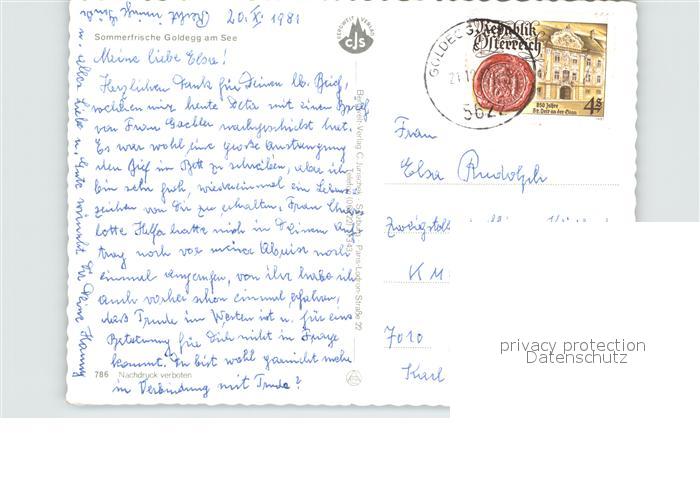 (Rest im innge Küv
20. X. 1981
Sommerfrische Goldegg am See
Meine liebe Elsa!
Herzlichen Dank für Deinen lb. Brief,
welchen mir heute Deta mit einem Brief
von Frau Gachler nachgeschickt hat.
Es war wohl eine große Anstrengung
den Brief im Bett zu schreiben, aber ich
bin sehr froh, wiedereinmal ein Lebens
zeichen von Dir zu erhalten. Frau
lotte Helfa hatte mich in Deinem Auf
trag noch vor meiner Abreise noch
einmal angerufen, von ihr habe ich
auch vorher schon einmal erfahren,
dass Trude im Westen ist u. für eine
Betreuung für Dich nicht in Frage
kommt. Du bist wohl garnicht mehr
in Verbindung mit Trude?
u. alles Liebe u. Gute wünscht Dir Deine Hanny
786 Nachdruck verboten
BERGWELT VERLAG
CJS
Bergwelt-Verlag C. Jurischek, Salzburg, Paris-Lodron-Straße 22
GOLDEGG
5622
Republik
Österreich
850 Jahre
St. Veit an der Glan
4 S
Frau
Elsa Rudolph
7010
Karl
privacy protection
Datenschutz